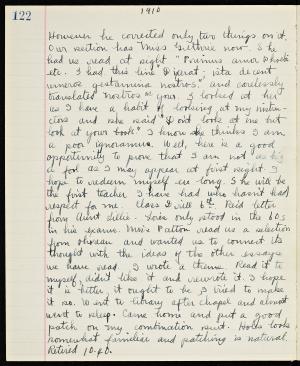 122
1910
However he corrected only two things on it.
Our section has Miss Guthrie now. She
had us read at sight "Primus amor Phoebi
etc. I had this line "dixerat; ista decent
umeros gestamina nostros", and carelessly
translated nostros "your". I looked at her
as I have a habit of looking at my instruc-
tors and she said "Don't look at me but
look at your book" I know she thinks I am
a poor ignoramus. Well, here is a good
opportunity to prove that I am not as big
a fool as I may appear at first sight. I
hope to redeem myself ere long. She will be
the first teacher I have had who hasn't had
respect for me. Class I will 6th. Rec'd letter
from Aunt Lillie. Lois only stood in the 60s
in his exams. Miss Patton read us a selection
from and wanted us to connect its
thought with the ideas of the other essays
we have read. I wrote a theme. Read it to
myself, didn't like it and rewrote it. I hope
it is better, it ought to be, I tried to make
it so. Went to library after chapel and almost
went to sleep. Came home and put a good
patch on my combination suit. Holes look
somewhat familiar and patching is natural.
Retired 10.40.